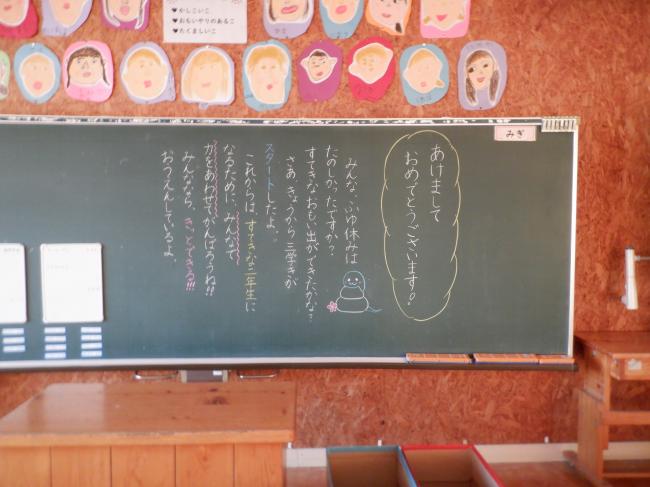 ♥かしこいこ
♥おもいやりのあるこ
♥たくましいこ
みぎ
あけまして
おめでとうございます!
みんな、ふゆ休みは
たのしかったですか?
すてきなおもい出ができたかな?
さあ、きょうから三学きが
スタートしたよ。
これからは、すてきな二年生に
なるために、みんなで
力をあわせてがんばろうね!!
みんななら、きっとできる!!!
おうえんしているよ。